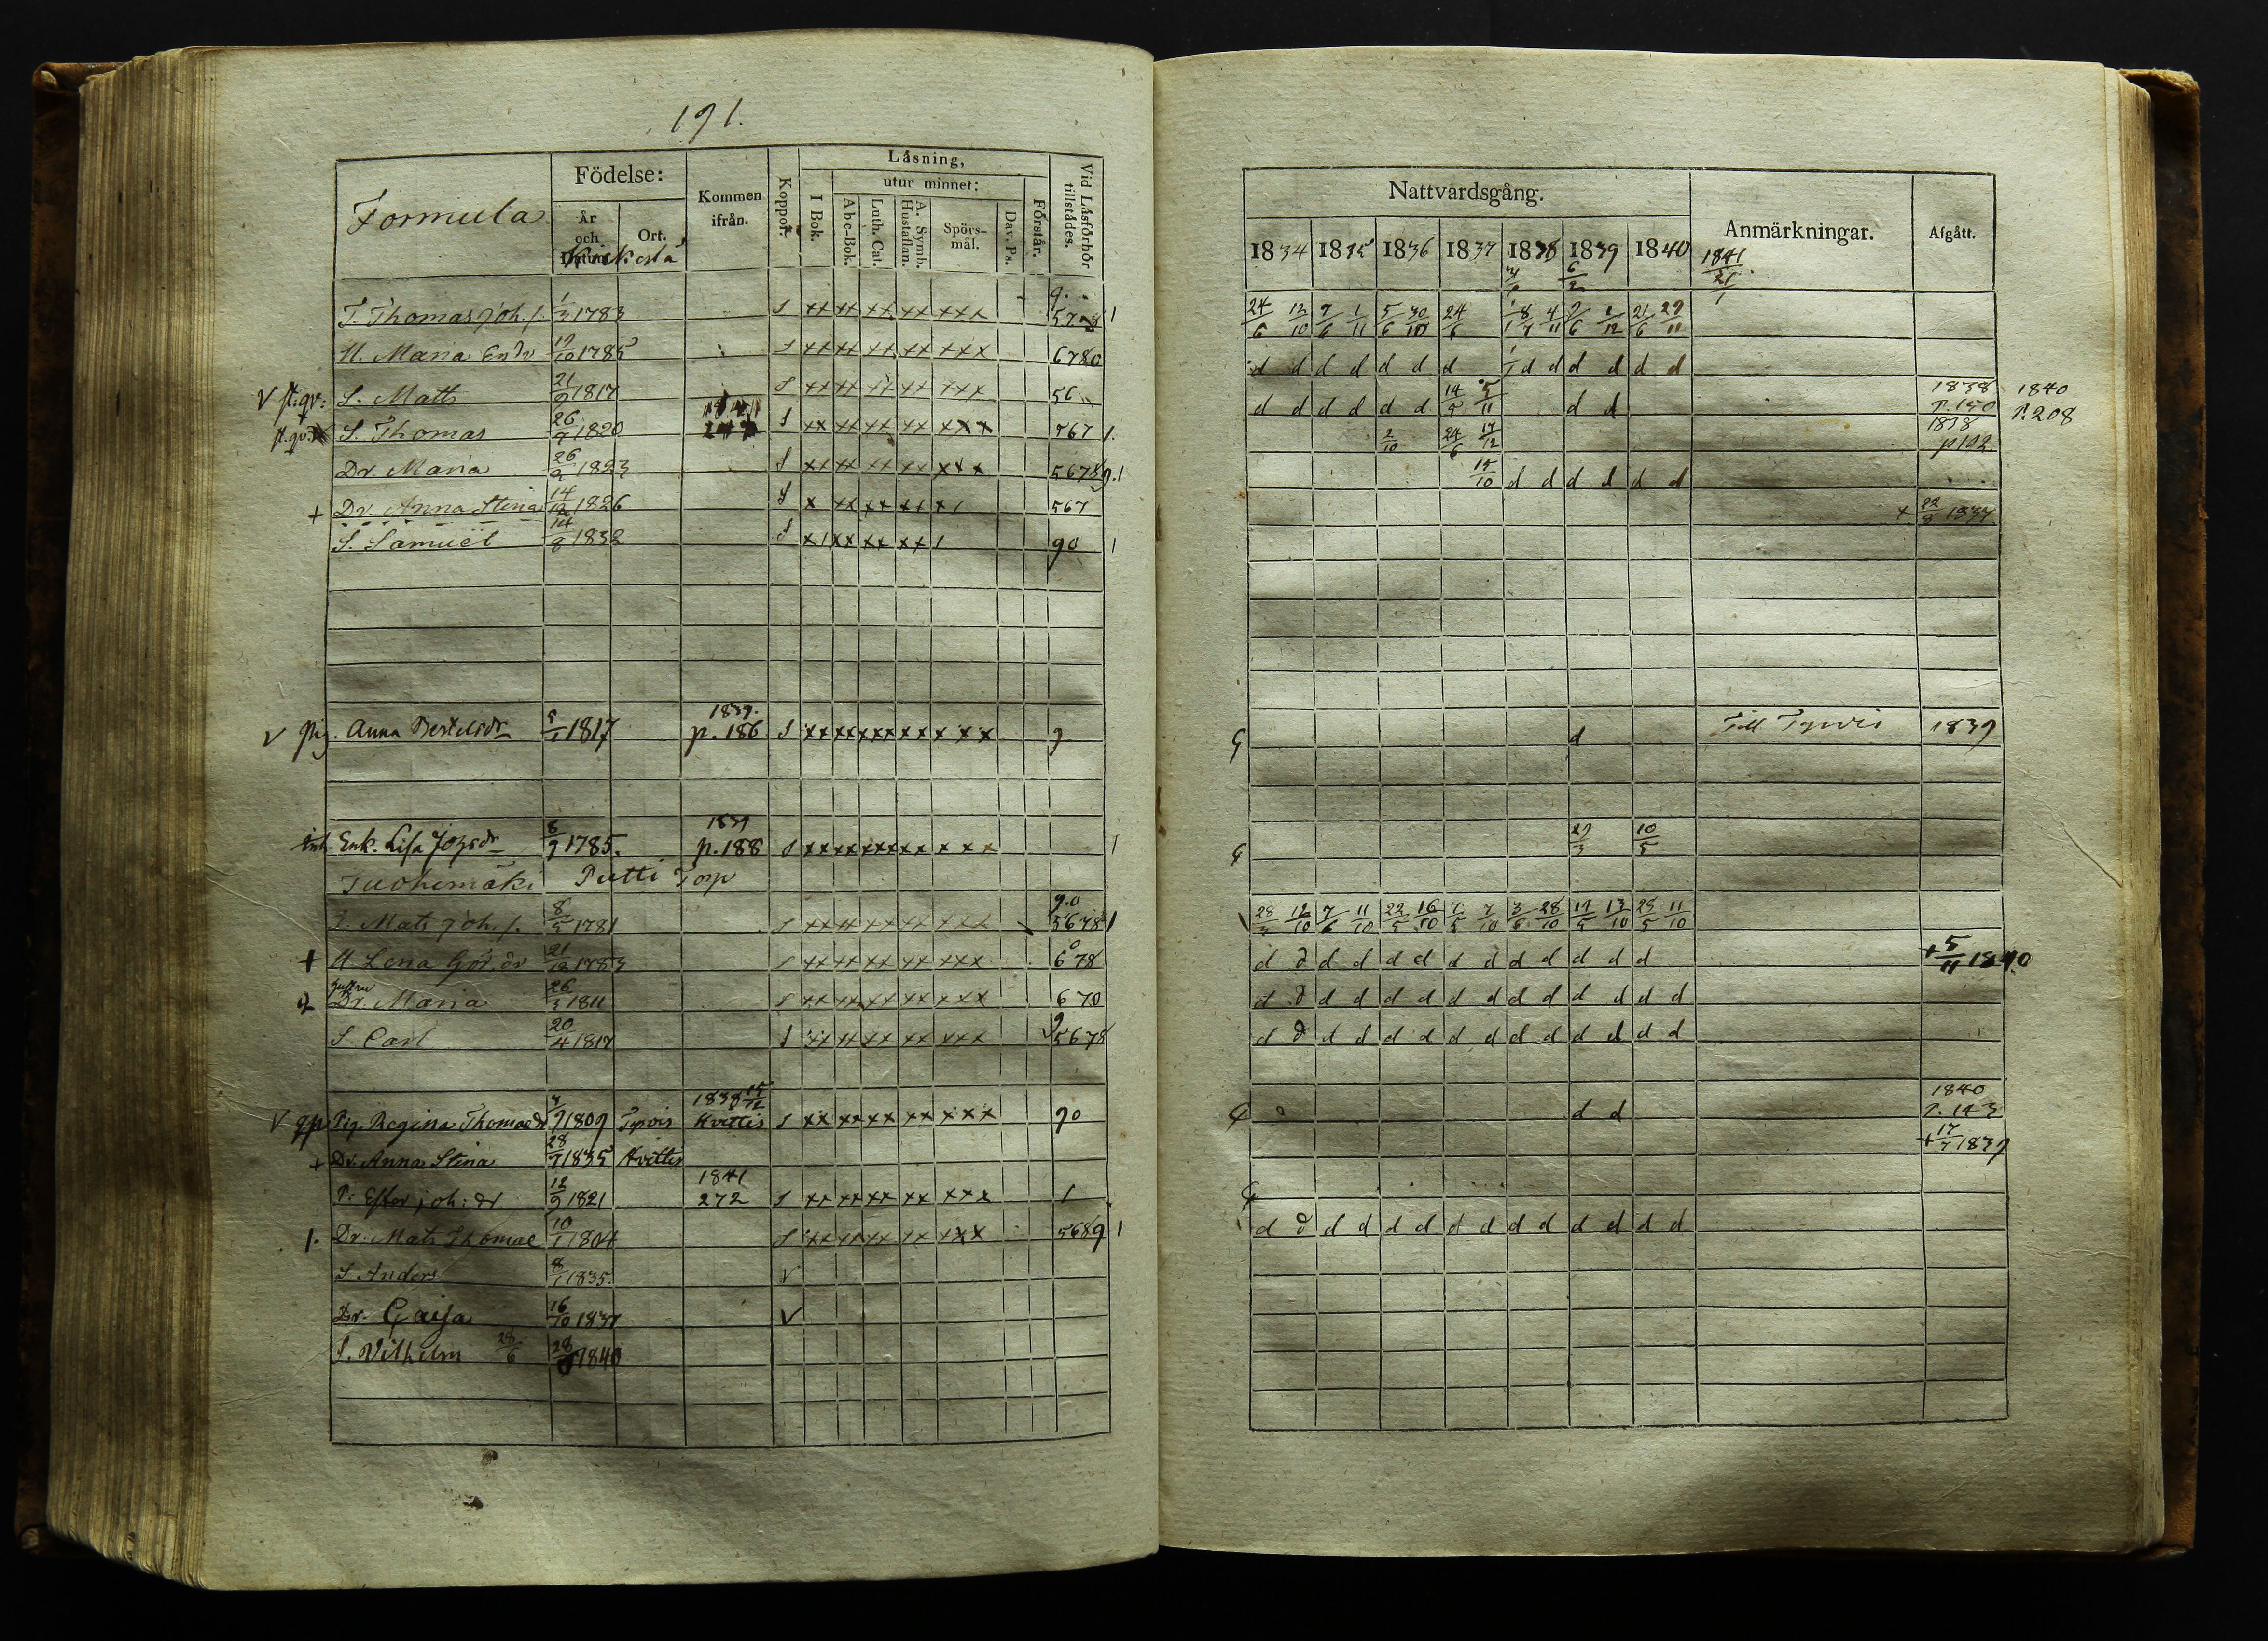 191.
Formula
Födelse:
År och Datum.
Ort.
Kommen ifrån.
Koppor.
Läsning,
I Bok.
utur minnet:
Abc-Bok.
Luth. Cat.
A. Symb. Hustaflan.
Spörs-mål.
Dav. Ps.
Förstår.
Vid Läsförhör tillstädes.
T. Thomas Joh. f. 1/3 1783 S xx xx xx xx xxx 9. 578 1
M. Maria 17/10 1785 S xx xx xx xx xxx 6780
S. Matts 21/9 1817 S xx xx xx xx xxx 56
S. Thomas 26/9 1820 S xx xx xx xx xxx 567 1.
Dr. Maria 26/2 1823 S xx xx xx xx xxx 56789.1
+ Dr. Anna Stina 14/12 1826 S x xx xx xx x1 567
S. Samuel 14/8 1832 S x1 xx xx xx 1 90 1
1839.
V Pig. Anna Bertelsdr 5/1 1817 p. 186 S xx xx xx xx x xx 9
1839
Enk. Lisa 8/9 1785. p. 188 S xx xx xx xx x x x 1
Tuohimäki Putti Torp
T. Mats Joh. f. 8/5 1781 S xx xx xx xx xxx 9.0 5678 1
+ M Lena 21/12 1783 S xx xx xx xx xxx 0 678
Dr. Maria 26/3 1811 S xx xx xx xx xxx 670
S. Carl 20/4 1817 S xx xx xx xx xxx 9 5678
1838 15/12
V Pig. Regina Thomasdr 1809 Tyrvis Hvittis S xx xx xx xx xxx 90
+ Dr. Anna Stina 28/7 1835 Hvittis
1841
P: Ester joh: dr 12/9 1821 272 S xx xx xx xx xxx 1
1. Dr: Mats Thomae 10/1 1804 S xx xx xx xx xxx 5689 1
S Anders 8/1 1835. V
Dr. Cajsa 16/10 1837 V
S. Vilhelm 28/6 28/6 1840
Nattvardsgång.
Anmärkningar.
Afgått.
1834 1835 1836 1837 1838 1839 1840
6/2
1841 21/1
24/6 12/10 7/6 1/11 5/6 30/10 24/6 8/7 4/11 2/6 2/12 21/6 29/11
d d d d d d d d d d d d d
d d d d d d 14/5 5/11 d d 1838 p. 150 1840 P. 208
2/10 24/6 17/12 1838 p 102
15/10 d d d d d d
+ 22/8 1837
G d Till Tyrvis 1839
G 29/3 10/5
28/5 12/10 7/6 11/10 22/5 16/10 7/5 7/10 3/6 28/10 17/5 13/10 28/5 11/10
d d d d d d d d d d d d d + 5/11 1840
d d d d d d d d d d d d d d
d d d d d d d d d d d d d d
1840
G d d P. 143
+ 17/7 1839
G
d d d d d d d d d d d d d d